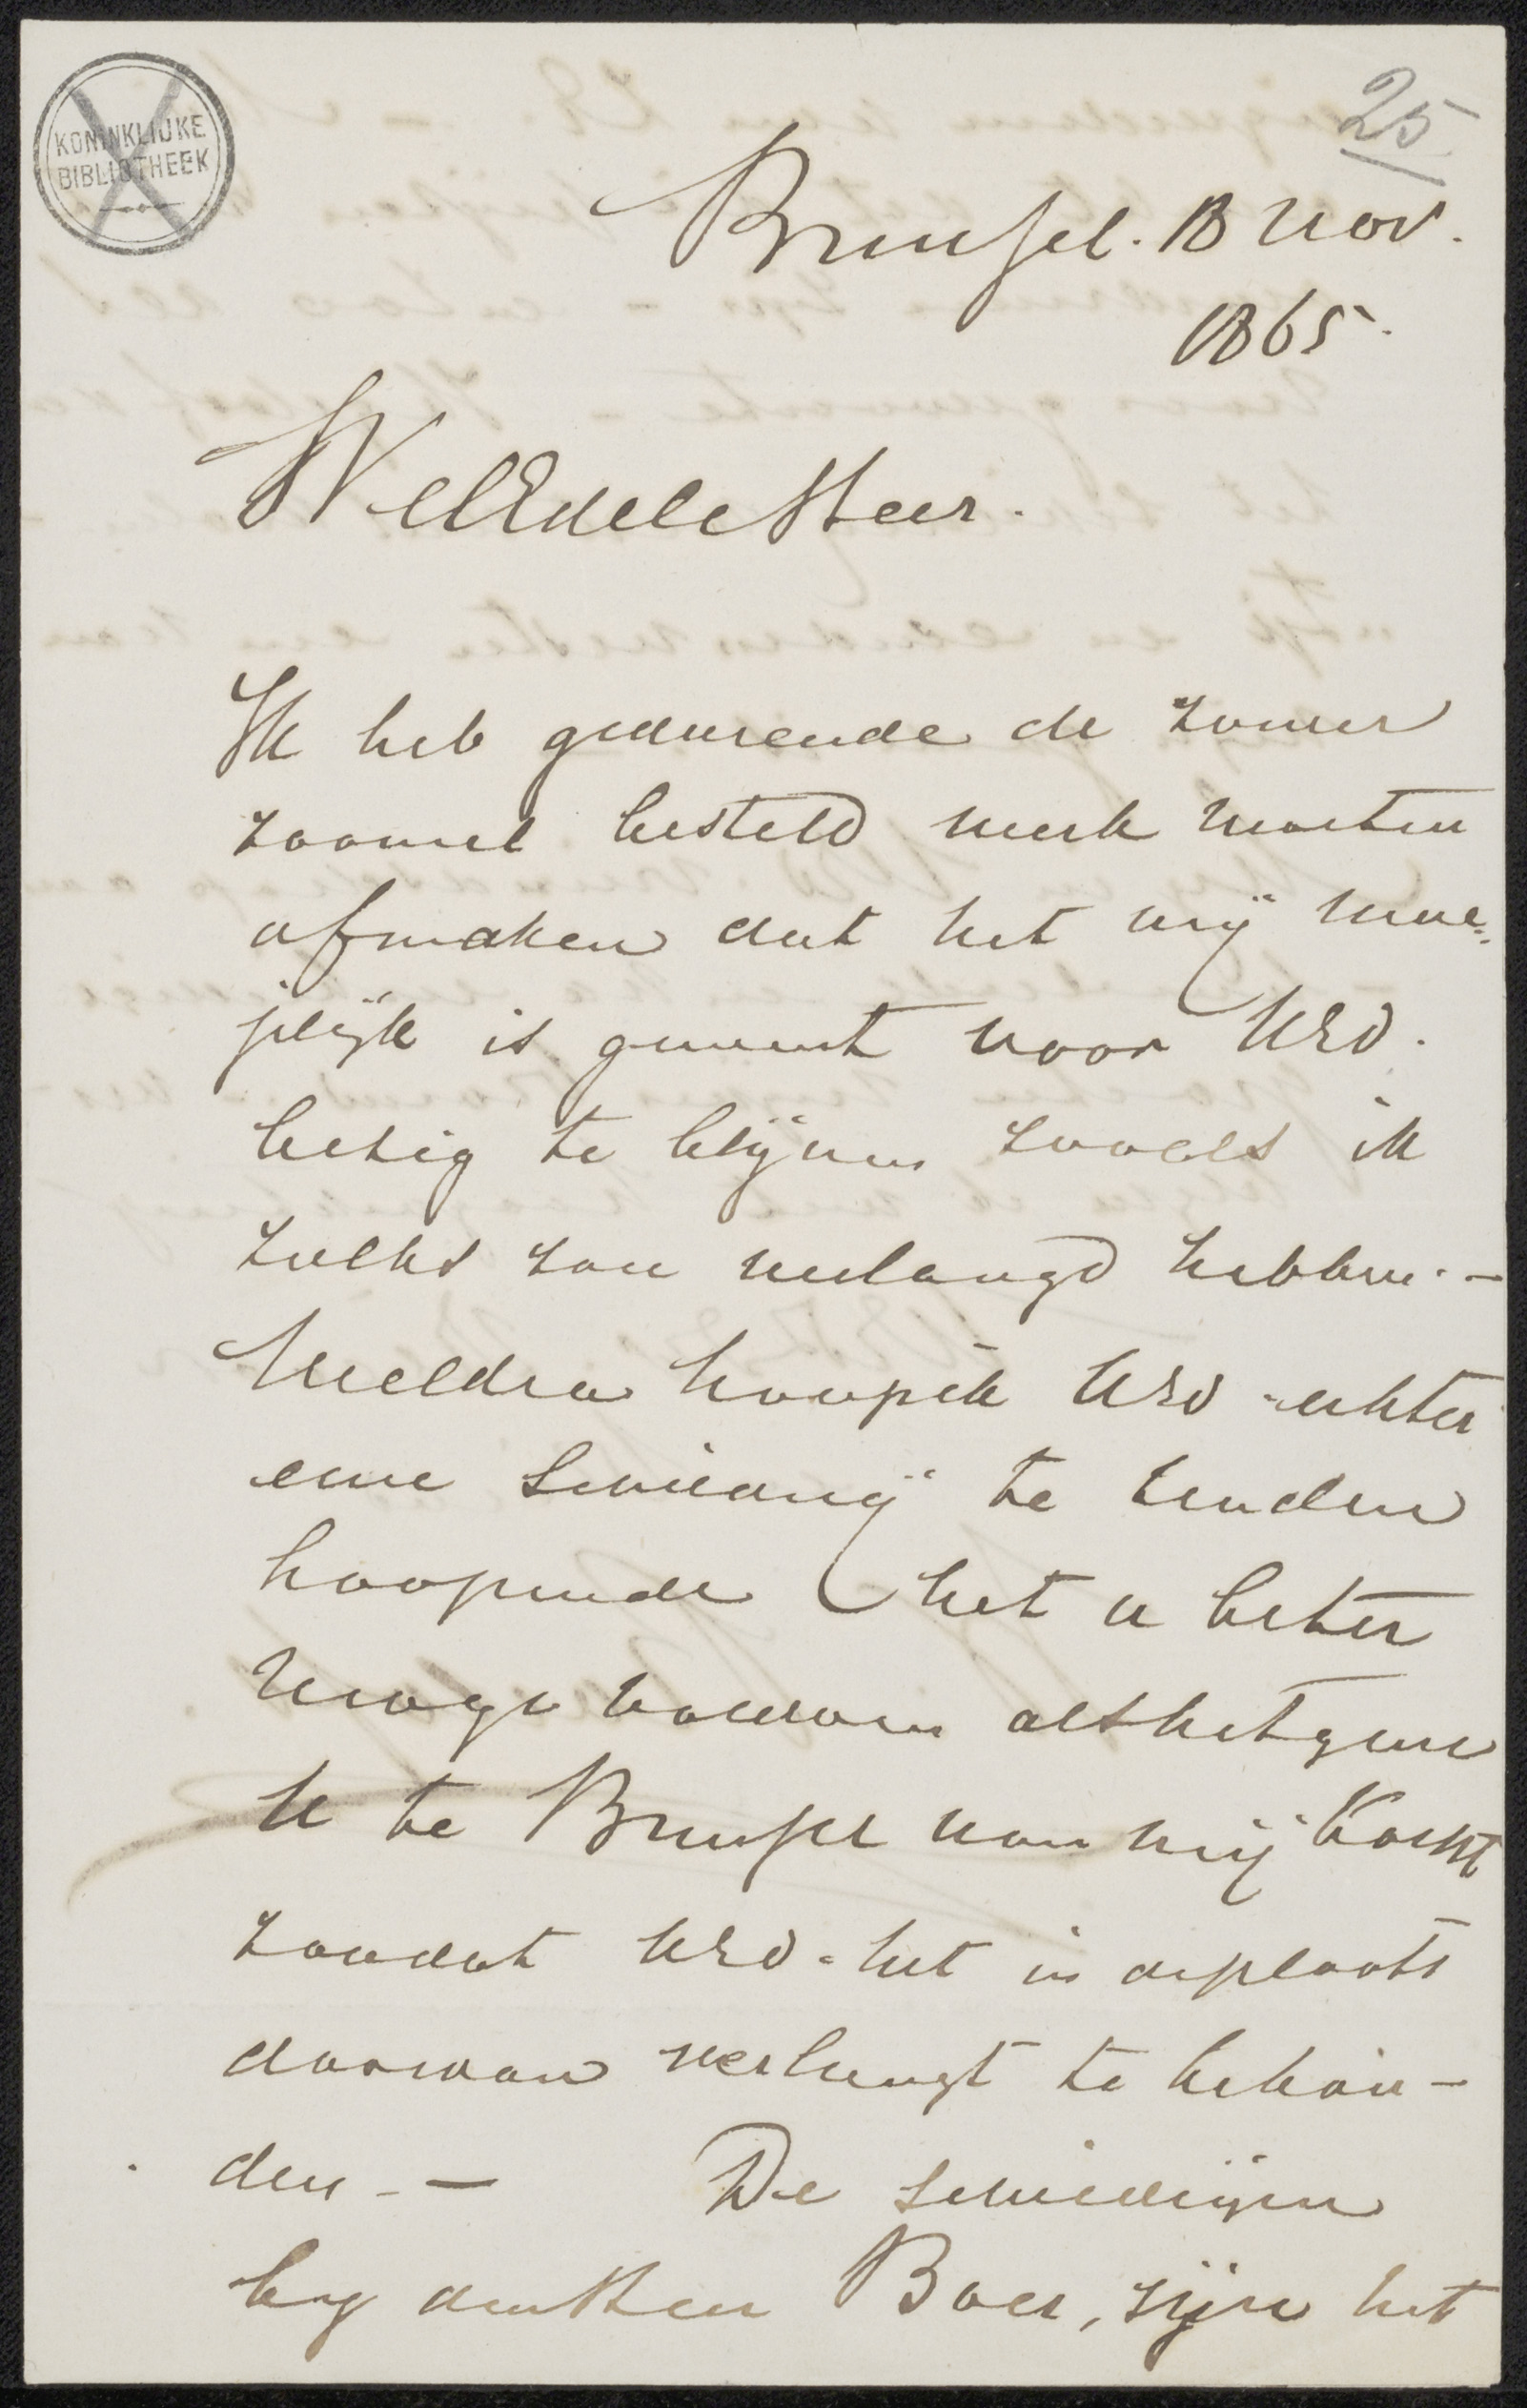 KONINKLIJKE
BIBLIOTHEEK
25
Brussel. 18 Nov.
1865.
WelEdele Heer.
Ik heb gedurende de zomer
zooveel besteld werk moeten
afmaken dat het mij moe=
jelijk is geweest voor UEd.
bezig te blijven zooals ik
zulks zou verlangd hebben. -
Weldra hoop ik UEd echter
eene schilderij te zenden
hoopende het u beter
moge voldoen als hetgeen
U te Brussel van mij kocht
zoodat UEd. het in de plaats
daarvan verlangt te behou-
den. - De schilderijen
by den Heer Boer, zijn het